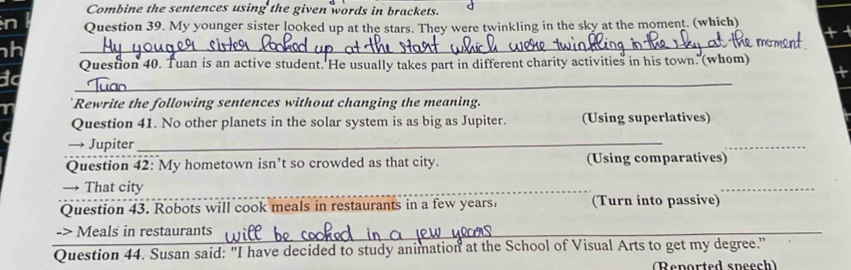 Combine the sentences using the given words in brackets.
Question 39. My younger sister looked up at the stars. They were twinkling in the sky at the moment. (which)
My youger sister looked up at the start which were twinfling in the sky at the moment.
Question 40. Tuan is an active student. He usually takes part in different charity activities in his town. (whom)
Tuan
Rewrite the following sentences without changing the meaning.
Question 41. No other planets in the solar system is as big as Jupiter. (Using superlatives)
→ Jupiter
Question 42: My hometown isn't so crowded as that city. (Using comparatives)
→ That city
Question 43. Robots will cook meals in restaurants in a few years. (Turn into passive)
-> Meals in restaurants will be cooked in a few years
Question 44. Susan said: "I have decided to study animation at the School of Visual Arts to get my degree."
(Reported speech)